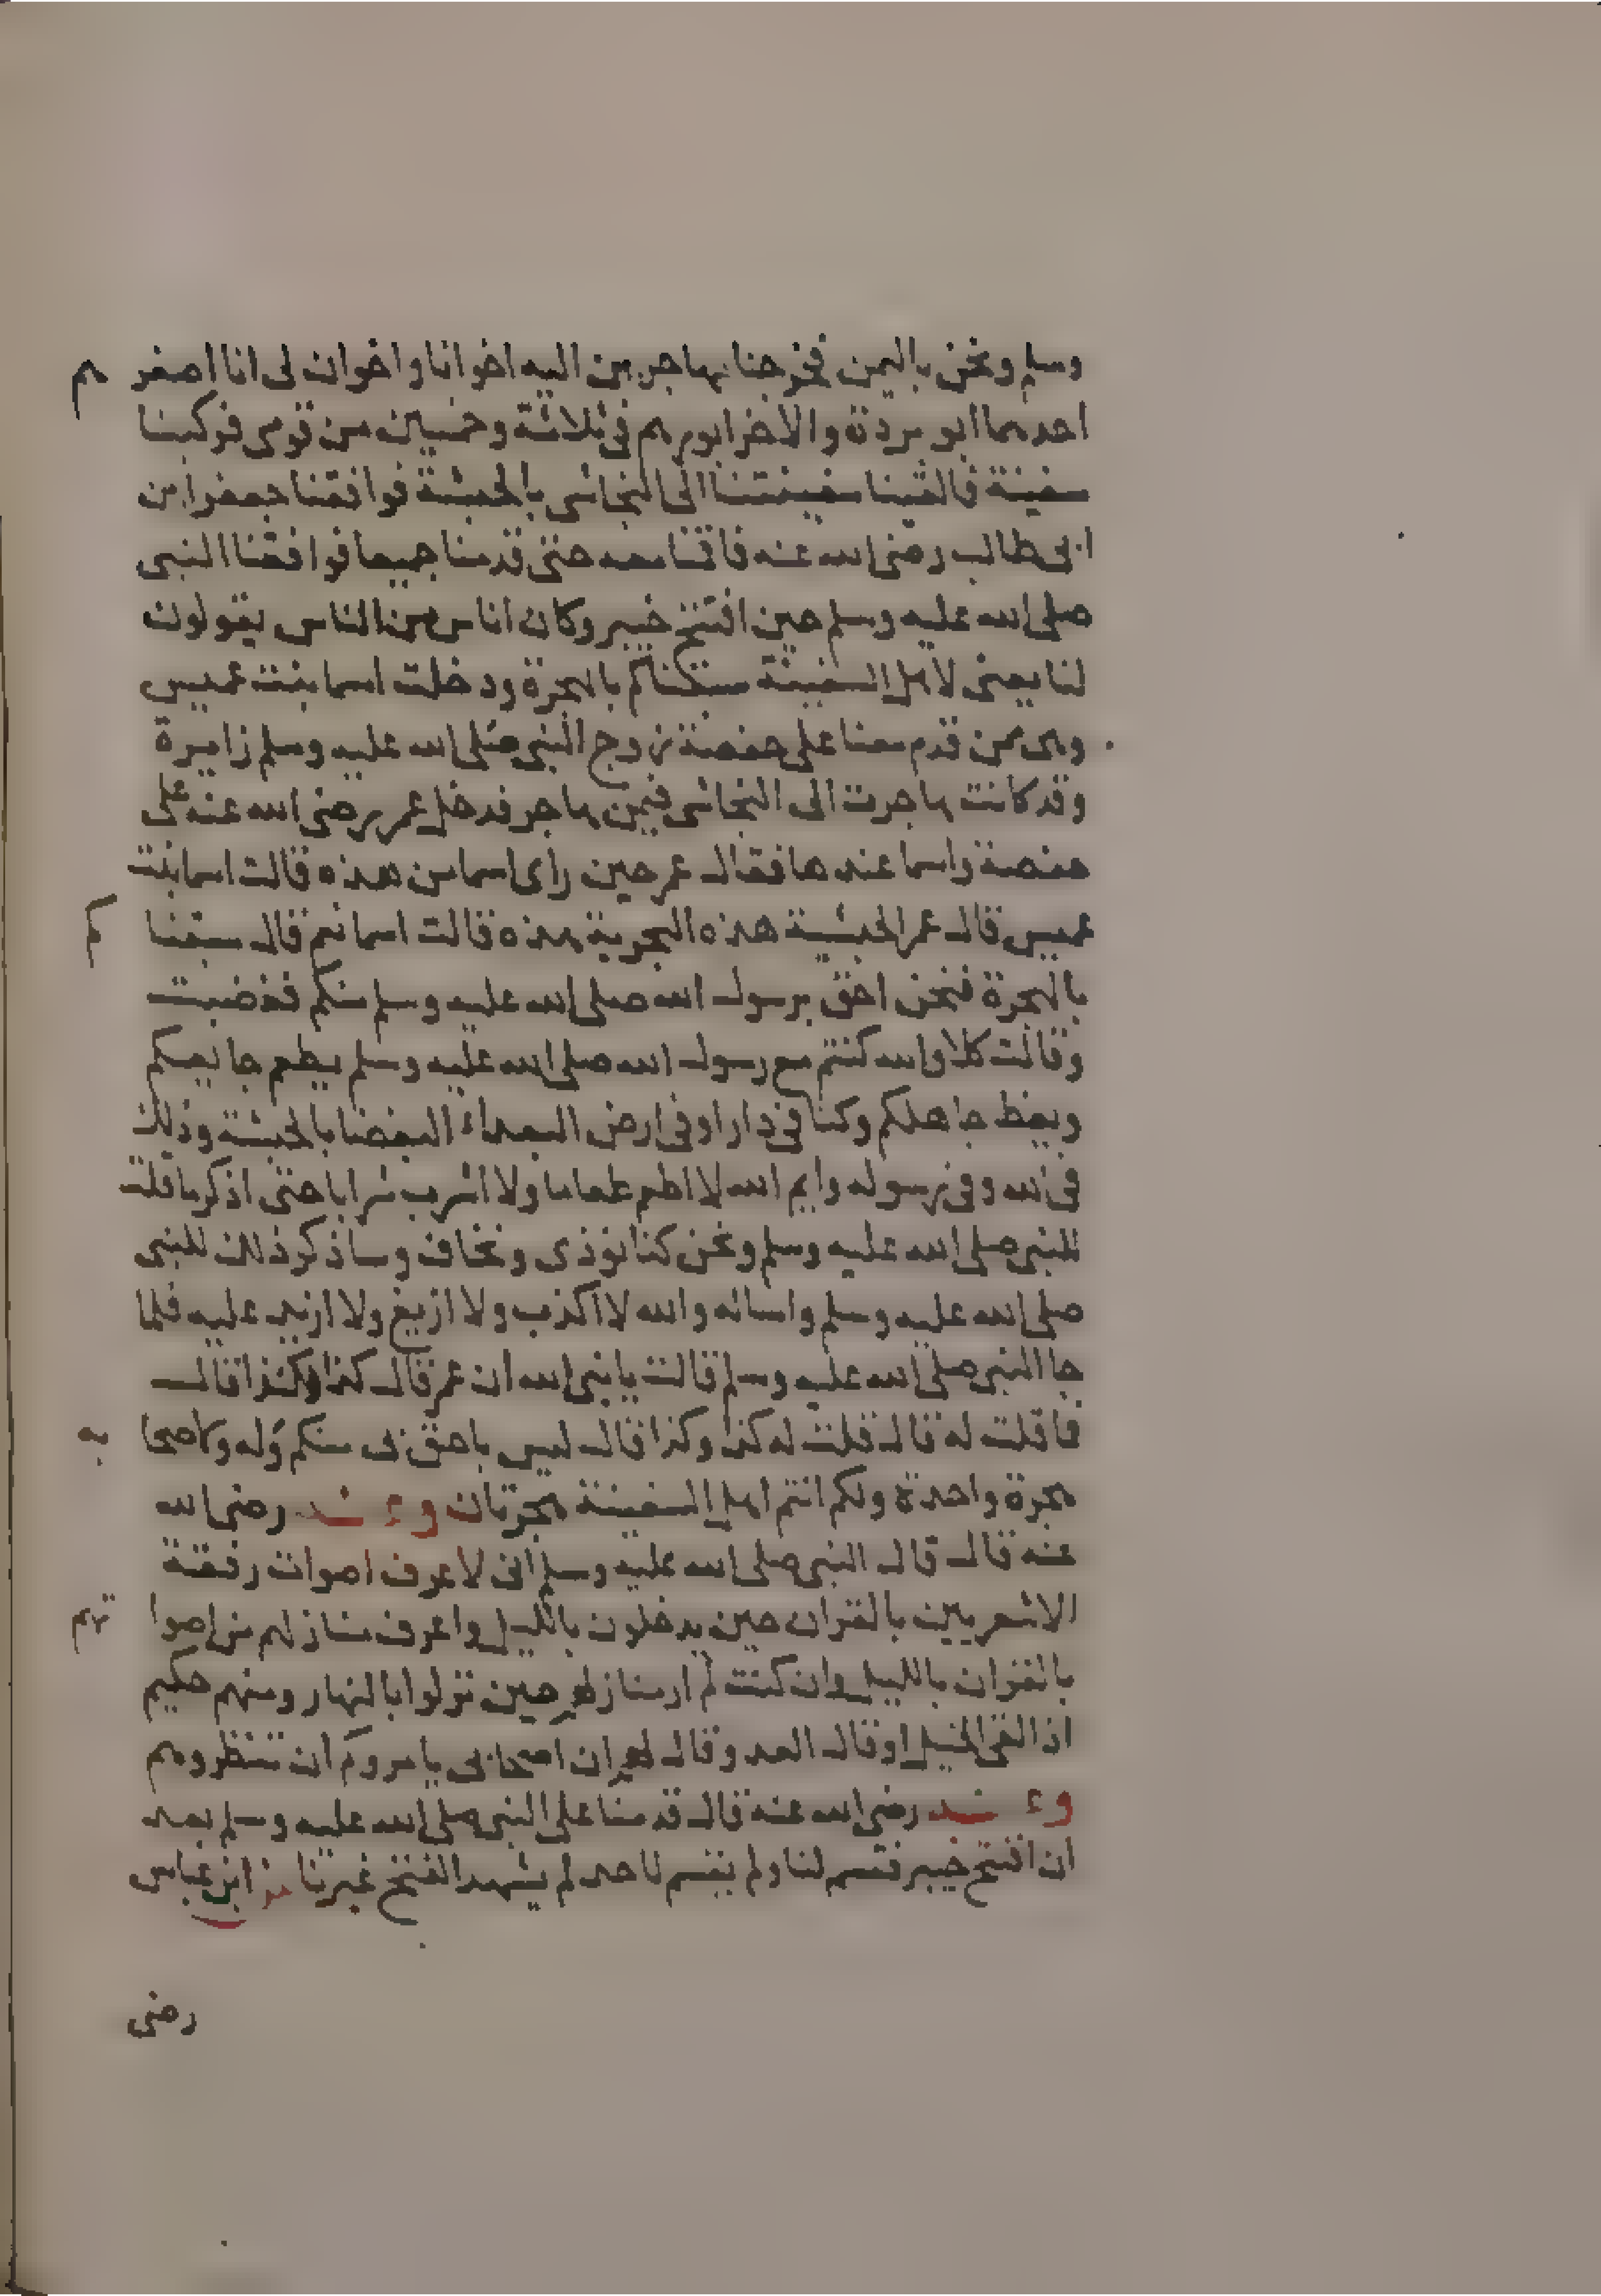 وسلم ونحن باليمن فخرجنا مهاجرين اليه اخوانا واخوان لى انا اصغر هم
احدهما ابو بردة والاخر ابورهم فى ثلاثة وخمسين من قومى فركبنا
سفينة فالقينا سفينتنا الى النجاشى بالحبشة فوافقنا جعفر ابن
ابى طالب رضى الله عنه فاقنا معه حتى قدمنا جميعا فوافقنا النبى
صلى الله عليه وسلم حين افتتح خيبر وكان اناس من الناس يقولون
لنا يعنى لاهل السفينة سبقناكم بالهجرة ودخلت اسما بنت عميس
وهى ممن قدم معنا على حفصة زوج النبى صلى الله عليه وسلم زايرة
وقد كانت هاجرت الى النجاشى فيمن هاجر فدخل عمر رضى الله عنه على
حفصة واسما عندها فقال عمر حين راى اسما من هذه قالت اسما بنت
عميس قال عمر الحبشية هذه البحرية هذه قالت اسما نعم قال سبقنا كم
بالهجرة فنحن احق برسول الله صلى الله عليه وسلم منكم فغضبت
وقالت كلا والله كنتم مع رسول الله صلى الله عليه وسلم يطعم جايعكم
ويعظ جاهلكم وكنا فى دار اوفى ارض البعداء البغضا بالحبشة وذلك
فى الله وفى رسوله وايم الله لا اطعم طعاما ولا اشرب شرابا حتى اذكر ما قلت
للنبى صلى الله عليه وسلم ونحن كنا نوذى ونخاف وساذكر ذلك للنبى
صلى الله عليه وسلم واساله والله لا اكذب ولا ازيغ ولا ازيد عليه فلما
جا النبى صلى الله عليه وسلم قالت يا نبى الله ان عمر قال كذا وكذا قال
فا قلت له قال قلت له كذا وكذا قال ليس باحق بى منكم وله ولاصحا به
هجرة واحدة ولكم انتم اهل السفينة هجرتان وعنه رضى الله
عنه قال قال النبى صلى الله عليه وسلم انى لاعرف اصوات رفقة
الاشعريين بالقران حين يدخلون بالليل واعرف منازلهم من اصوا تهم
بالقران بالليل وان كنت لم ار منازلهم حين نزلوا بالنهار ومنهم حكيم
اذا لقى الخيل اوقال العد وقال لهم ان اصحابى يامروكم ان تنتظروهم
وعنه رضى الله عنه قال قدمنا على النبى صلى الله عليه وسلم بعد
ان افتتح خيبر فقسم لنا ولم يقسم لاحد لم يشهد الفتح غيرنا عن ابن عباس
رضى